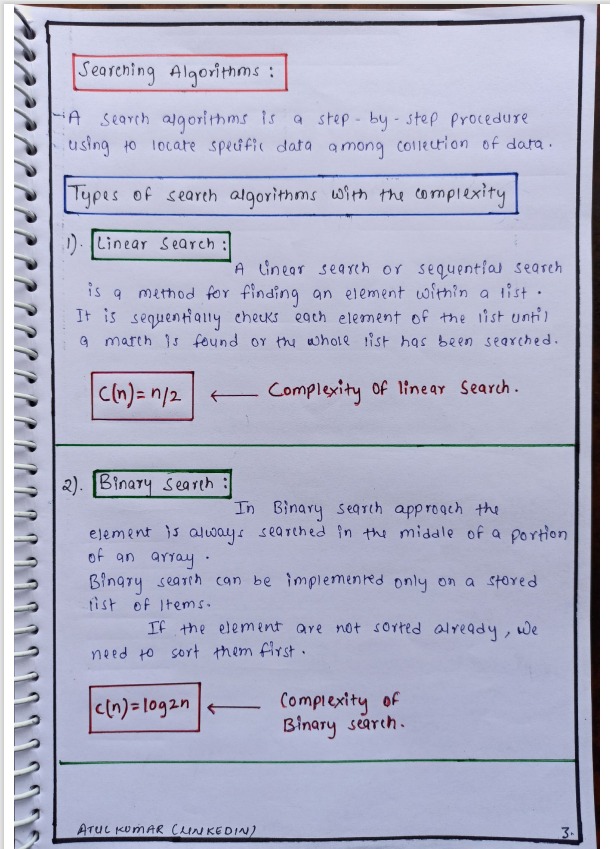 Searching Algorithms :
→ A search algorithms is a step-by-step procedure
using to locate specific data among collection of data.
Types of search algorithms with the complexity
1). Linear Search :
A linear search or sequential search
is a method for finding an element within a list.
It is sequentially checks each element of the list until
a match is found or the whole list has been searched.
C(n) = n/2 ← Complexity of linear Search.
2). Binary Search :
In Binary search approach the
element is always searched in the middle of a portion
of an array.
Binary search can be implemented only on a stored
list of Items.
If the element are not sorted already, we
need to sort them first.
C(n) = log2n ← Complexity of
Binary search.
ATUL KUMAR (LINKEDIN) 3.